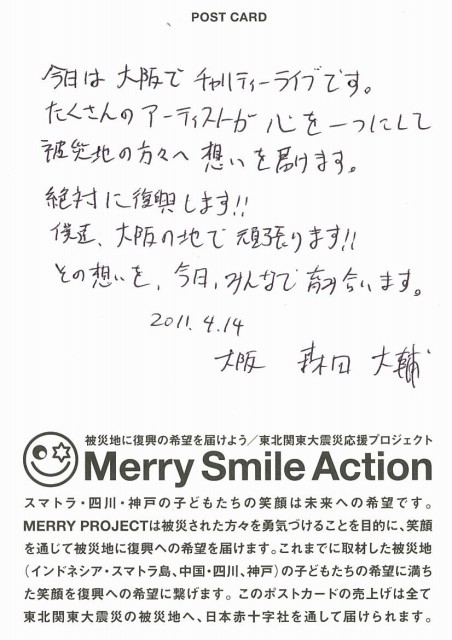 POST CARD
今日は大阪でチャリティーライブです。
たくさんのアーティストが心を一つにして
被災地の方々へ想いを届けます。
絶対に復興します!!
僕達、大阪の地で頑張ります!!
その想いを、今日、みんなで育み合います。
2011.4.14
大阪 森田 大輔
被災地に復興の希望を届けよう/東北関東大震災応援プロジェクト
Merry Smile Action
スマトラ・四川・神戸の子どもたちの笑顔は未来への希望です。
MERRY PROJECTは被災された方々を勇気づけることを目的に、笑顔
を通じて被災地に復興への希望を届けます。これまでに取材した被災地
(インドネシア・スマトラ島、中国・四川、神戸)の子どもたちの希望に満ち
た笑顔を復興への希望に繋げます。このポストカードの売上げは全て
東北関東大震災の被災地へ、日本赤十字社を通して届けられます。